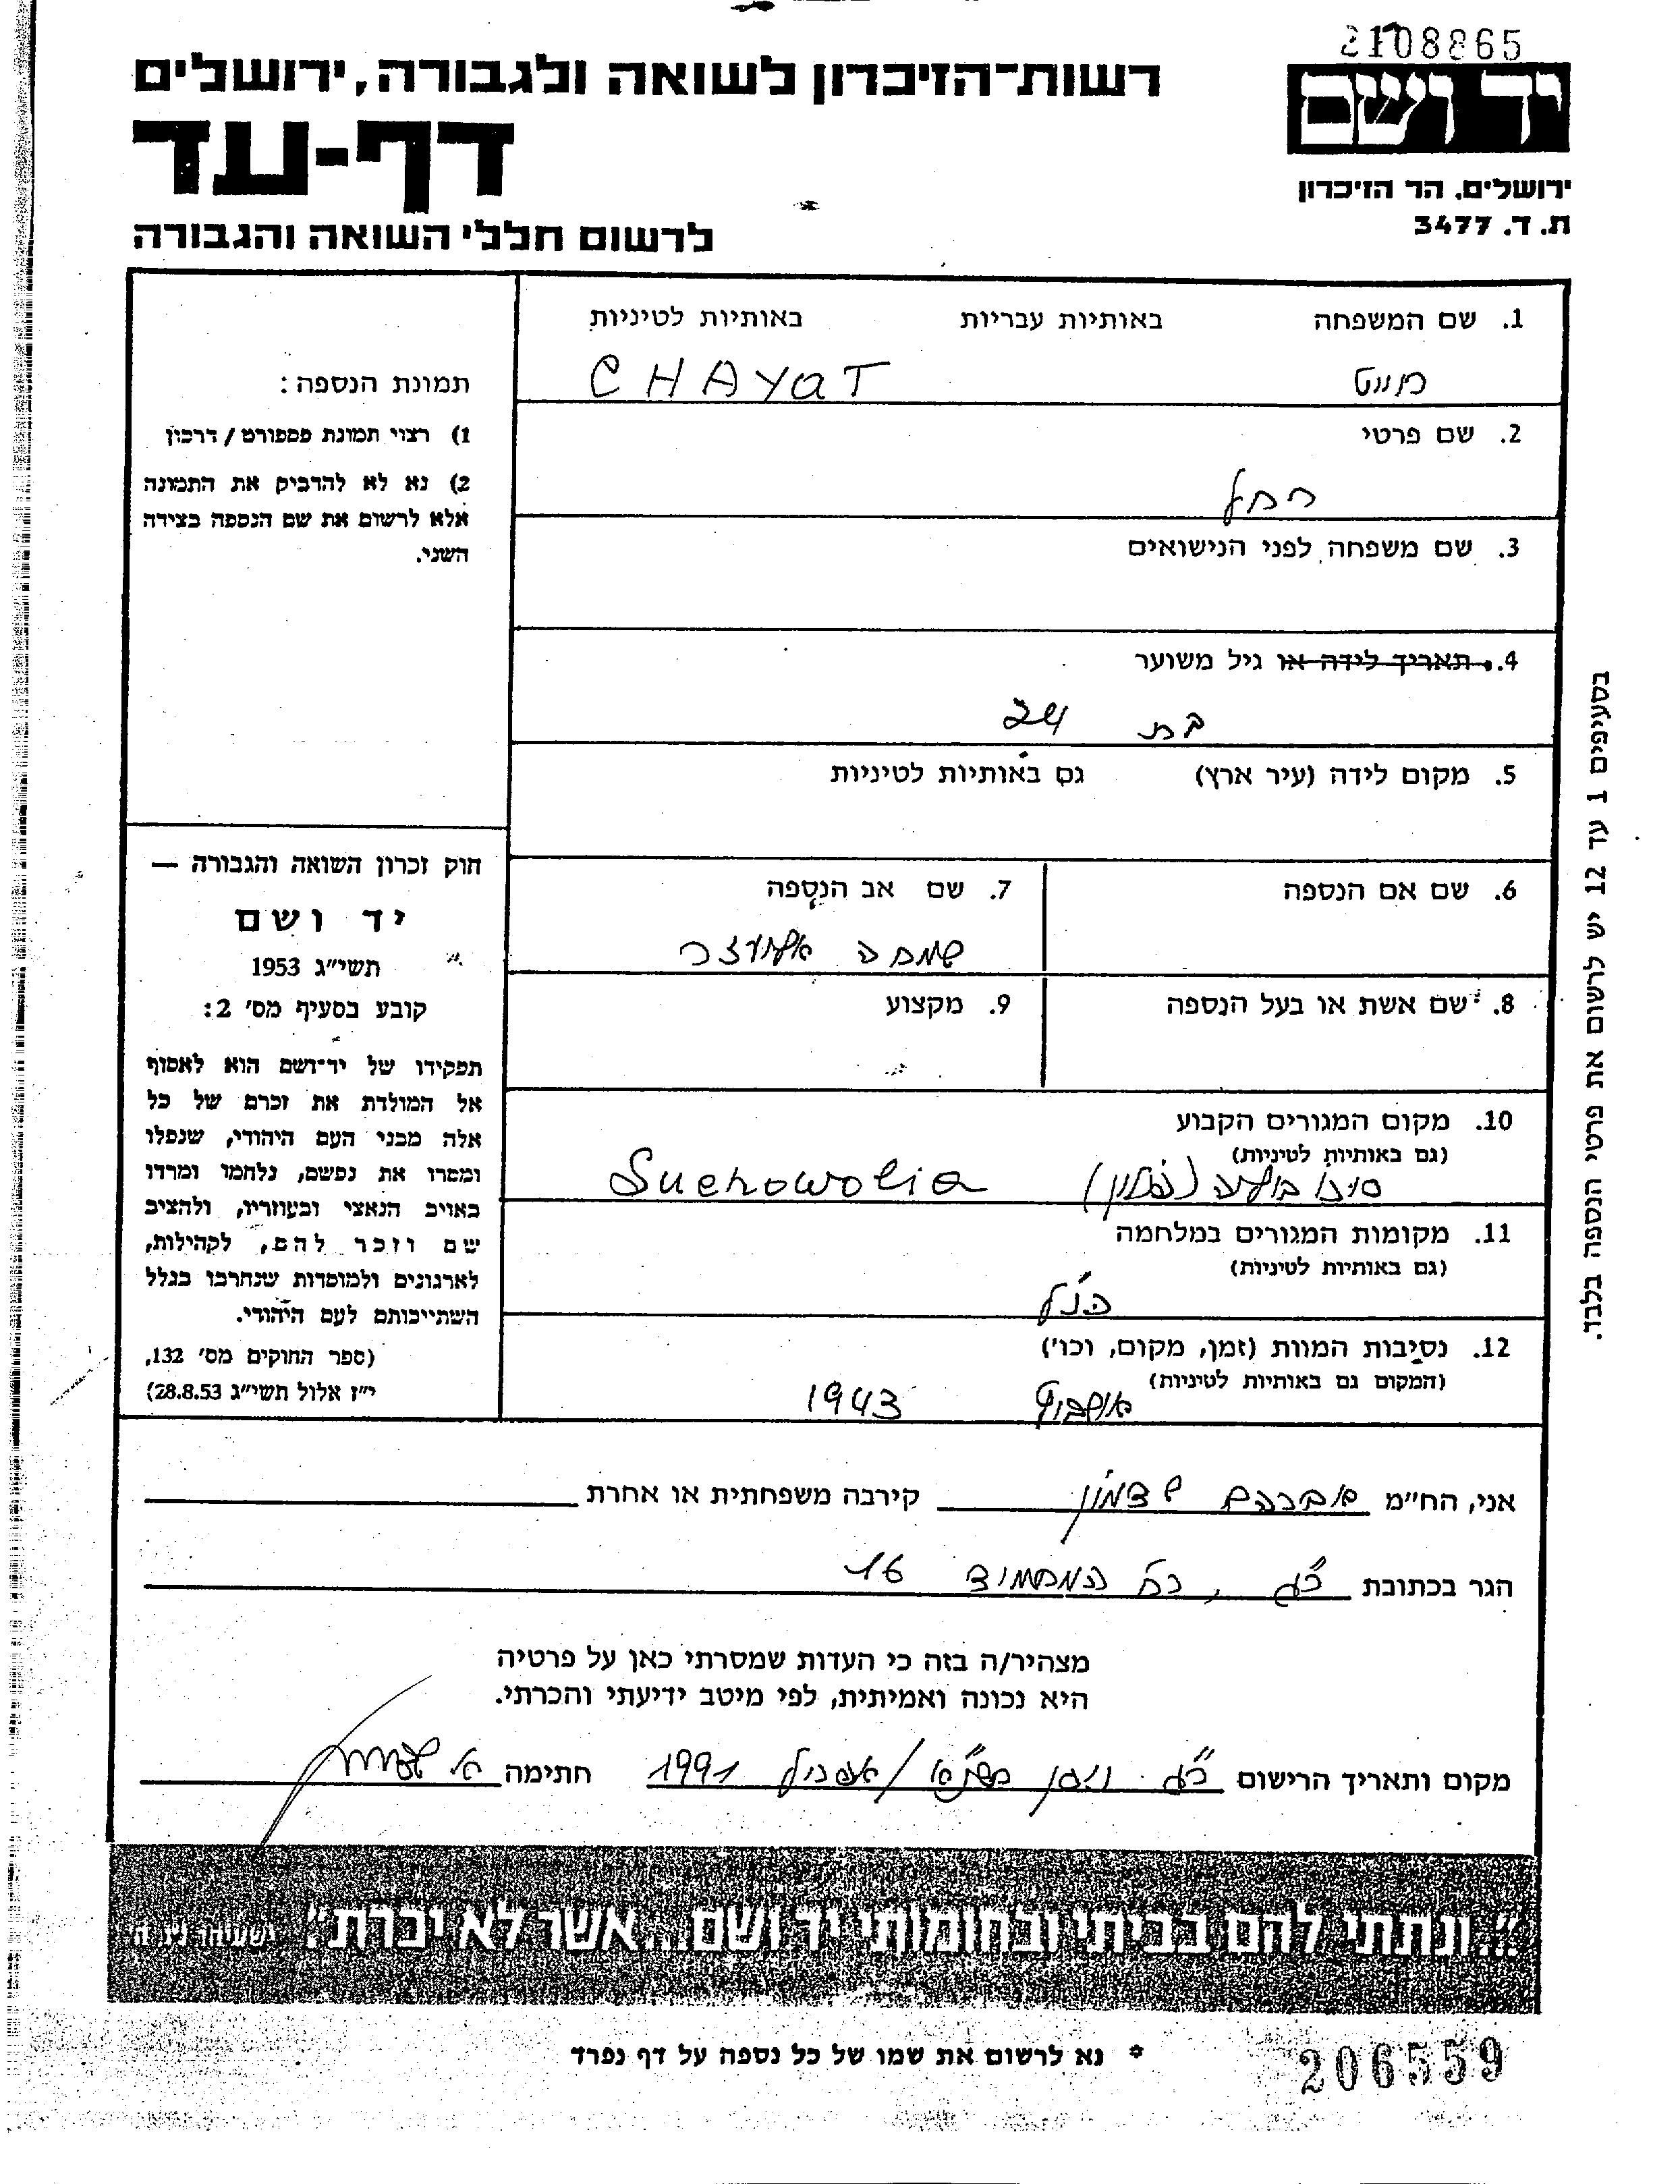 2108865
יד ושם
ירושלים, הר הזיכרון
ת.ד. 3477
רשות־הזיכרון לשואה ולגבורה, ירושלים
דף-עד
לרשום חללי השואה והגבורה
1. שם המשפחה באותיות עבריות באותיות לטיניות
חייט CHAYAT
2. שם פרטי
רחל
3. שם משפחה לפני הנישואים
4. תאריך לידה או גיל משוער
בת 24
5. מקום לידה (עיר ארץ) גם באותיות לטיניות
6. שם אם הנספה 7. שם אב הנספה
שמחה אלעזר
8. שם אשת או בעל הנספה 9. מקצוע
10. מקום המגורים הקבוע
(גם באותיות לטיניות)
(פולין) Suchowolia
11. מקומות המגורים במלחמה
(גם באותיות לטיניות)
הנ"ל
12. נסיבות המוות (זמן, מקום, וכו')
(המקום גם באותיות לטיניות)
אושביץ 1943
תמונת הנספה:
1) רצוי תמונת פספורט / דרכון
2) נא לא להדביק את התמונה
אלא לרשום את שם הנספה בצידה
השני.
חוק זכרון השואה והגבורה —
יד ושם
תשי"ג 1953
קובע בסעיף מס' 2:
תפקידו של יד־ושם הוא לאסוף
אל המולדת את זכרם של כל
אלה מבני העם היהודי, שנפלו
ומסרו את נפשם, נלחמו ומרדו
באויב הנאצי ובעוזריו, ולהציב
שם וזכר להם, לקהילות,
לארגונים ולמוסדות שנחרבו בגלל
השתייכותם לעם היהודי.
(ספר החוקים מס' 132,
י"ז אלול תשי"ג 28.8.53)
בסעיפים 1 עד 12 יש לרשום את פרטי הנספה בלבד.
אני, הח"מ אברהם קירבה משפחתית או אחרת
הגר בכתובת ת"א, רח' 16
מצהיר/ה בזה כי העדות שמסרתי כאן על פרטיה
היא נכונה ואמיתית, לפי מיטב ידיעתי והכרתי.
מקום ותאריך הרישום ת"א ניסן תשנ"א / אפריל 1991 חתימה
"...ונתתי להם בביתי ובחומותי יד ושם... אשר לא יכרת". ישעיהו נ"ו ה
* נא לרשום את שמו של כל נספה על דף נפרד
206559